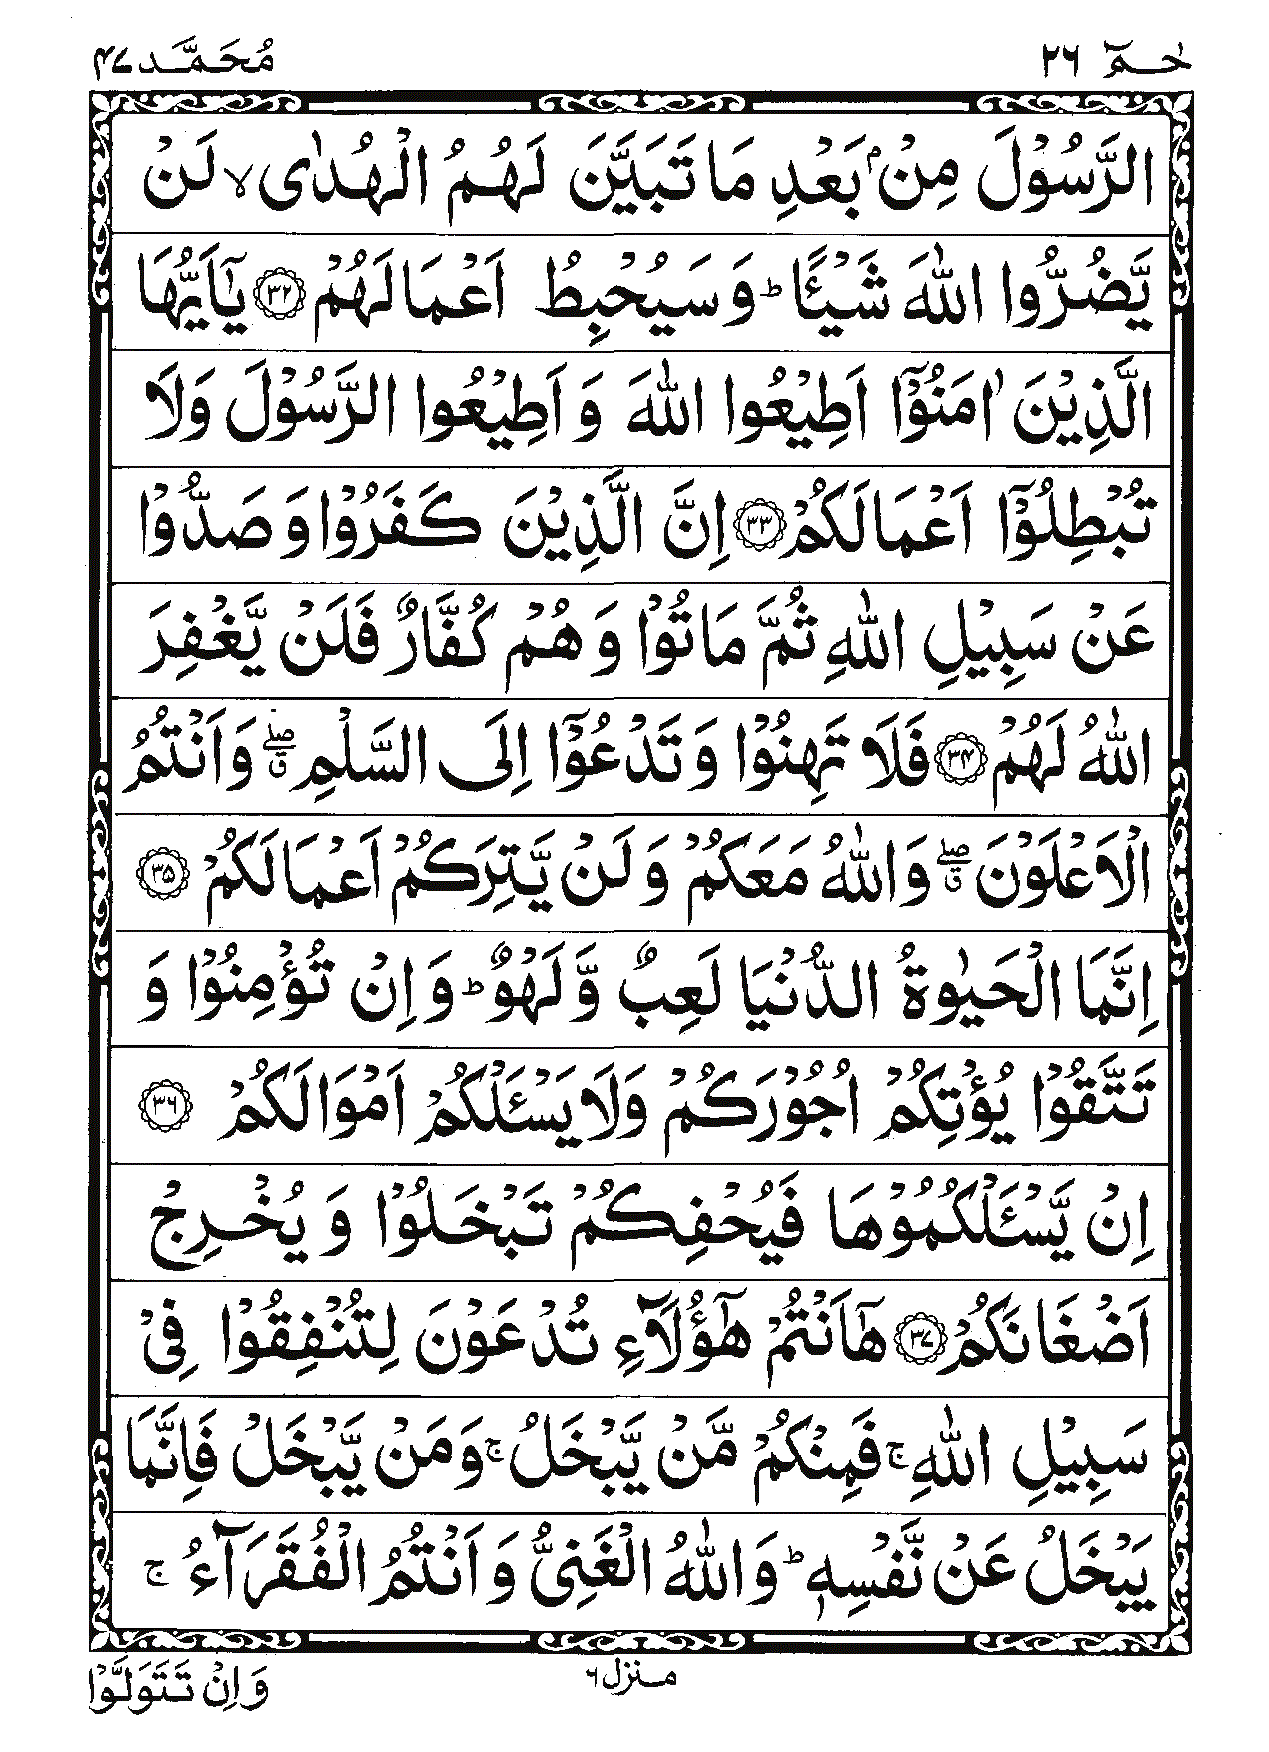 حٰمٓ ٢٦ مُحَمَّد ٤٧
الرَّسُوْلَ مِنْۢ بَعْدِ مَا تَبَيَّنَ لَهُمُ الْهُدٰى ۙ لَنْ
يَّضُرُّوا اللّٰهَ شَيْـًٔا ؕ وَسَيُحْبِطُ اَعْمَالَهُمْ ﴿۳۲﴾ يٰۤاَيُّهَا
الَّذِيْنَ اٰمَنُوْۤا اَطِيْعُوا اللّٰهَ وَ اَطِيْعُوا الرَّسُوْلَ وَلَا
تُبْطِلُوْۤا اَعْمَالَكُمْ ﴿۳۳﴾ اِنَّ الَّذِيْنَ كَفَرُوْا وَ صَدُّوْا
عَنْ سَبِيْلِ اللّٰهِ ثُمَّ مَاتُوْا وَ هُمْ كُفَّارٌ فَلَنْ يَّغْفِرَ
اللّٰهُ لَهُمْ ﴿۳۴﴾ فَلَا تَهِنُوْا وَ تَدْعُوْۤا اِلَى السَّلْمِ ۖۗ وَ اَنْتُمُ
الْاَعْلَوْنَ ۖۗ وَ اللّٰهُ مَعَكُمْ وَ لَنْ يَّتِرَكُمْ اَعْمَالَكُمْ ﴿۳۵﴾
اِنَّمَا الْحَيٰوةُ الدُّنْيَا لَعِبٌ وَّ لَهْوٌ ؕ وَ اِنْ تُؤْمِنُوْا وَ
تَتَّقُوْا يُؤْتِكُمْ اُجُوْرَكُمْ وَلَا يَسْـَٔلْكُمْ اَمْوَالَكُمْ ﴿۳۶﴾
اِنْ يَّسْـَٔلْكُمُوْهَا فَيُحْفِكُمْ تَبْخَلُوْا وَ يُخْرِجْ
اَضْغَانَكُمْ ﴿۳۷﴾ هٰۤاَنْتُمْ هٰۤؤُلَآءِ تُدْعَوْنَ لِتُنْفِقُوْا فِيْ
سَبِيْلِ اللّٰهِ ۚ فَمِنْكُمْ مَّنْ يَّبْخَلُ ۚ وَمَنْ يَّبْخَلْ فَاِنَّمَا
يَبْخَلُ عَنْ نَّفْسِهٖ ؕ وَ اللّٰهُ الْغَنِيُّ وَ اَنْتُمُ الْفُقَرَآءُ ۚ
منزل ٦
وَ اِنْ تَتَوَلَّوْا